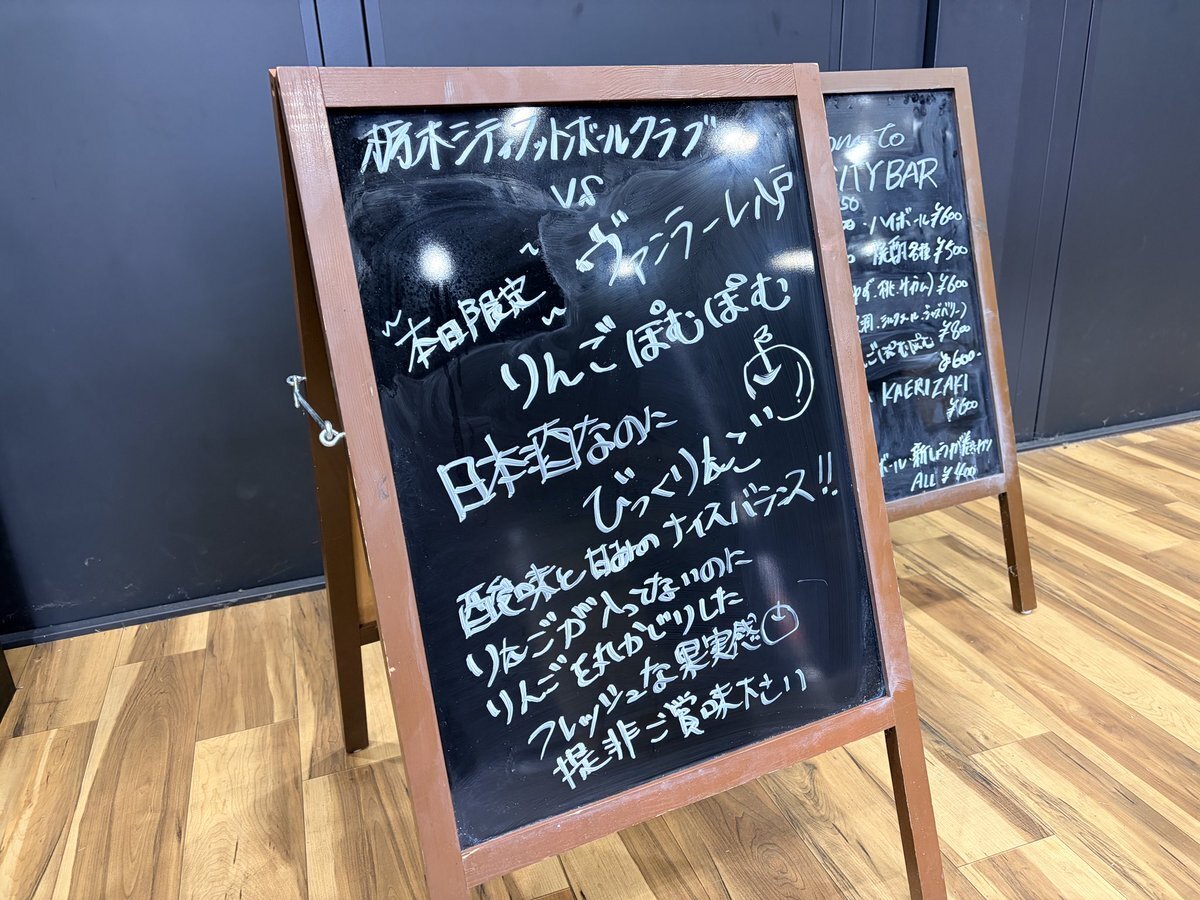 栃木シティフットボールクラブ
VS
ヴァンラーレ八戸
~本日限定~
りんごぽむぽむ
日本酒なのに
びっくりんご
酸味と甘みのナイスバランス!!
りんごが入ってないのに
りんごを丸かじりした
フレッシュな果実感
是非ご賞味下さい
to
CITY BAR
50
ハイボール ¥600
各種 ¥500
ゆず.桃. ¥600
¥800
りんごぽむぽむ ¥600-
KAERIZAKI
¥600
ボール・新しょうが
ALL ¥400